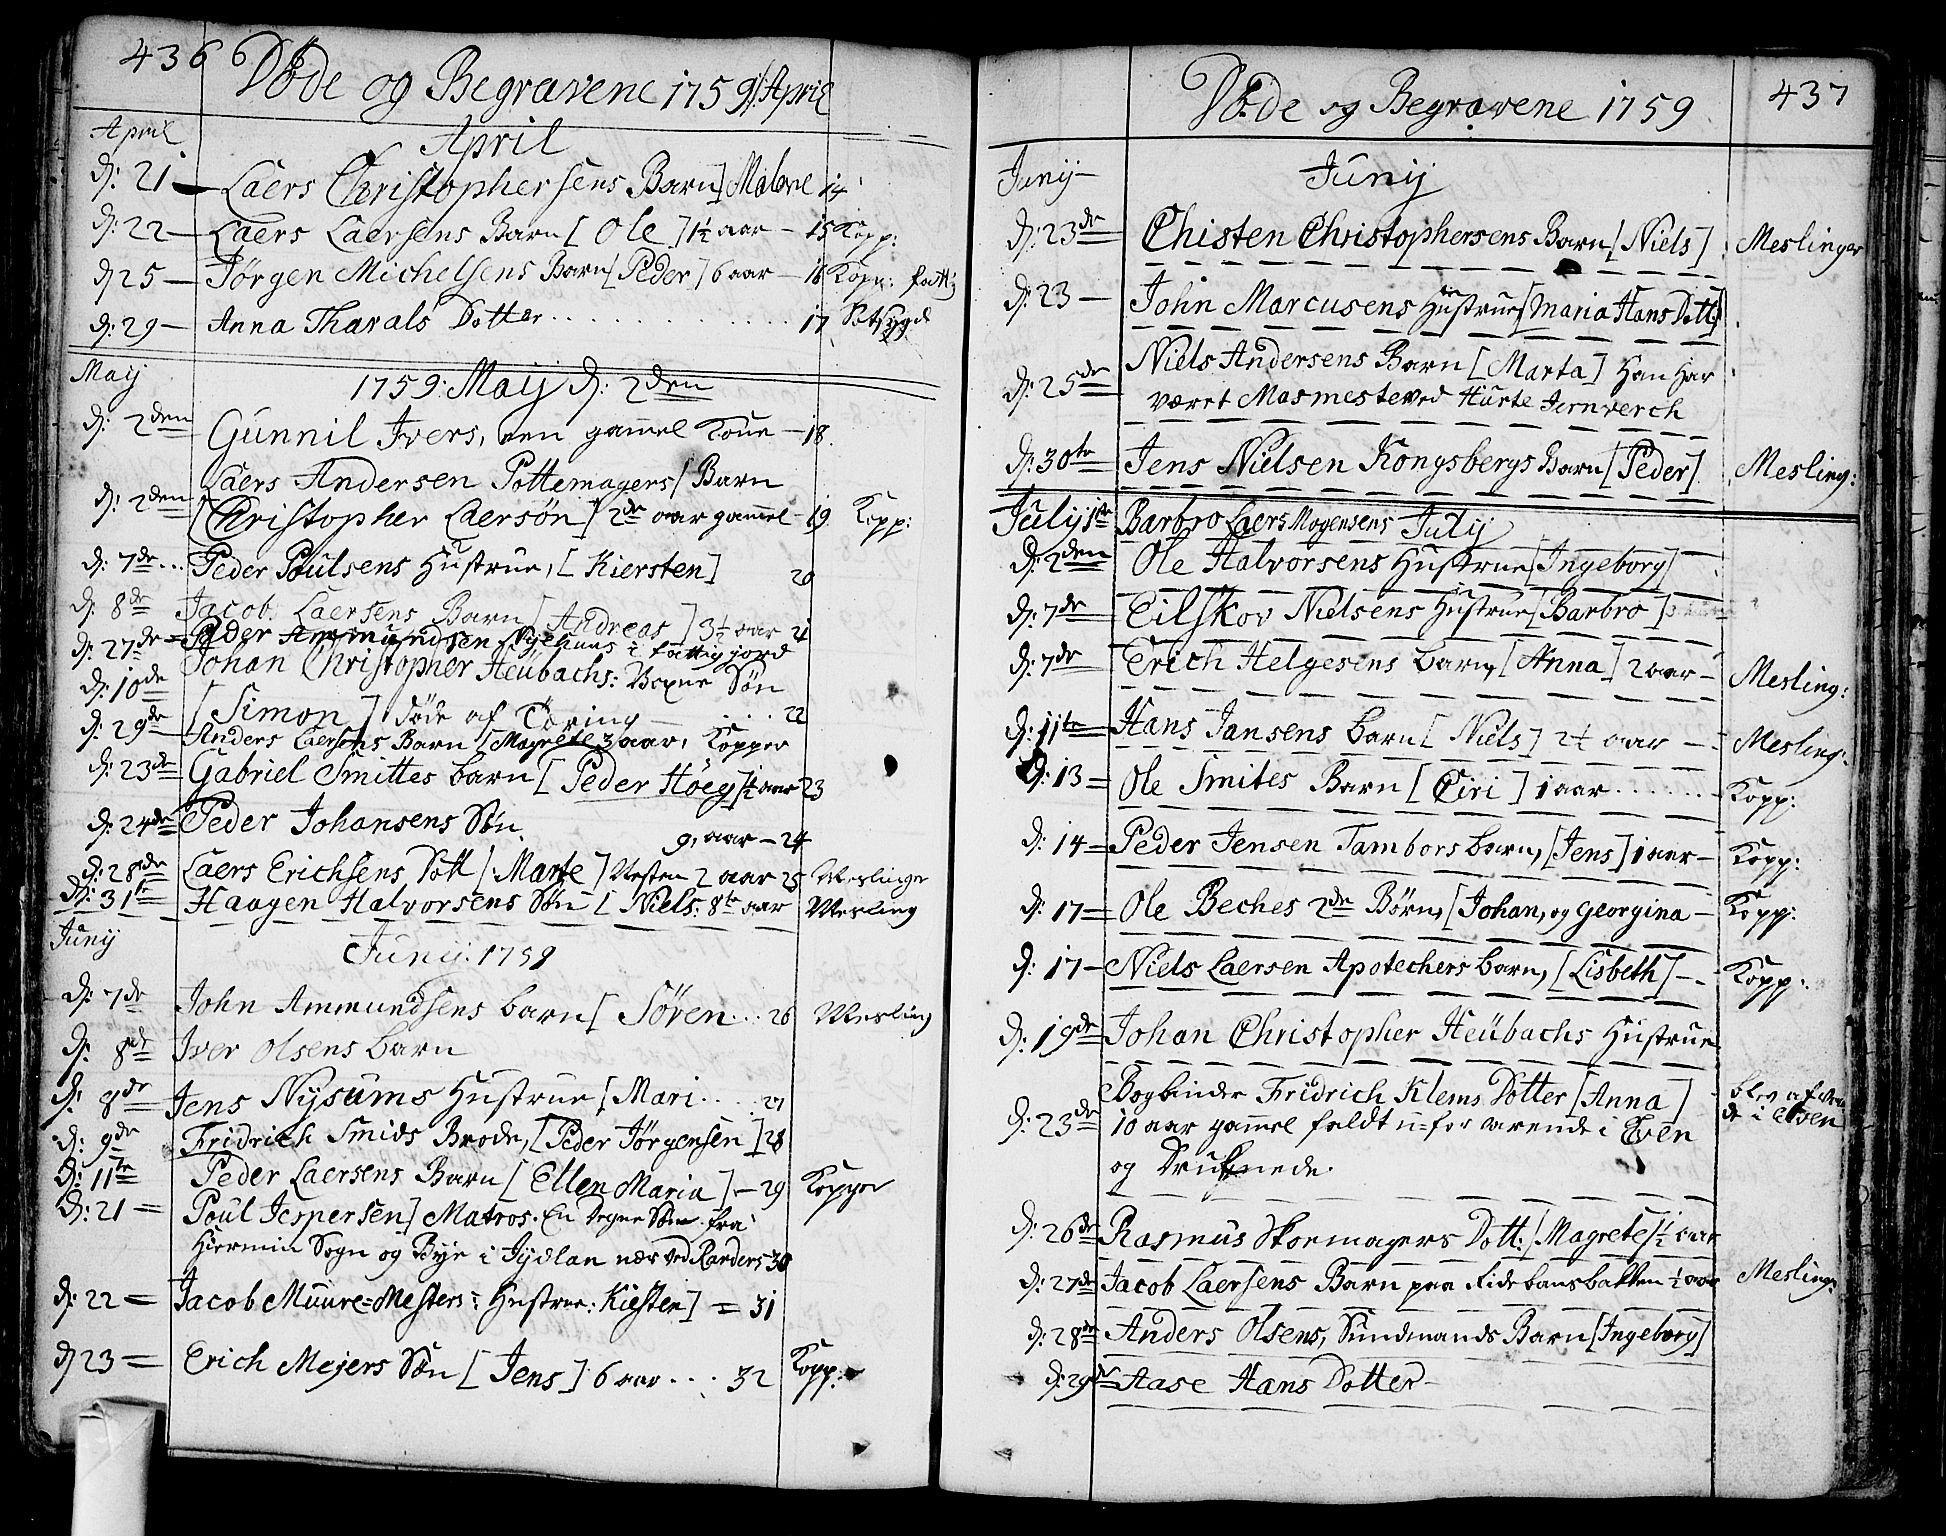 436 Døde og Begravene 1759/: April
April April
d: 21 — Laers Christophersens Barn] Malene 14
d: 22 — Laers Laersens Barn [ Ole ] 1½ aar — 15 Kopp:
d 25 — Jørgen Michelsens Barn [ Peder ] 6 aar — 16 Kopp: fattig
d: 29 — Anna Tharals Dotter . . . . . . 17 Sotsygd
Maij 1759: Maij d: 2den
d: 2den Gunnil Ivers, een gamel Kone — 18.
Laers Andersen Pottemagers [ Barn
d: 2den [ Christopher Laersøn ] 2de aar gamel — 19 Kopp:
d: 7de ... Peder Poulsens Hustrue, [ Kiersten ] 20
d: 8de Jacob Laersens Barn [ Andreas ] 3½ aar 21
d: 27de = Peder Ammundsen Syehuus i fattig jord
d: 10de Johan Christopher Heubachs: Voxne Søn
[ Simon ] døde af Tæring — . . . . 22
d: 29de Anders Laersens Barn [ Magrete 3 aar, Kopper
d: 23de Gabriel Smittes barn [ Peder Höeg ] ½ aar 23
d: 24de Peder Johansens Søn. 9, aar — 24
d: 28de Laers Erichsens Dott [: Marte ] Nesten 2 aar 25 Meslinge
d: 31te Haagen Halvorsens Søn [ Niels: 8te aar Mesling
Junij Junij: 1759
d: 7de John Ammundsens barn [ Søren . . . 26 Mesling
d: 8de Iver Olsens barn
d: 8de Jens Nysums Hustrue [ Mari . . . . 27
d: 9de Fridrich Smids Brode, [ Peder Jørgensen ] 28
d: 11te Peder Laersens Barn [ Ellen Maria ] — 29 Kopper
d: 21 = Poul Jespersen ] Matros. En Degne Søn fra
Hiermin Sogn og Bye i Jydlan nær ved Randers 30
d: 22 = Jacob Muure=Mesters: Hustrue: Kiesten ] = 31
d 23 = Erich Mejers Søn [ Jens ] 6 aar . . . 32 Kopp:
Døde og Begravene 1759 437
Junij — Junij
d: 23de Chisten Christophersens Barn [ Niels ] Meslinger
d: 23 — John Marcusens Hustrue [ Maria Hans Dott ]
Niels Andersens Barn [ Marta ] Han Har
d: 25de været Masmester ved Hurte Jernverch
d: 30te Jens Nielsen Kongsbergs Barn [ Peder ]. Mesling:
Julij 1te Barbro Laers Mogensens Julij
d: 2den Ole Halvorsens Hustrue [ Ingeborg ]
d: 7de Eilskov Nielsens Hustrue [ Barbro ]
d: 7de Erich Helgesens barn, [ Anna ] 2 aar — Mesling:
d: 11te Hans Jansens barn [ Niels ] 2½ aar — Mesling:
d: 13 = Ole Smites Barn [ Eiri ] 1 aar . . . . . . Kopp:
d: 14 = Peder Jensen Tambors barn, [ Jens ] 1 aar — Kopp:
d: 17 = Ole Beches 2de Børn, [ Johan, og Georgina — Kopp:
d: 17 — Niels Laersen Apotechers barn, [ Lisbeth ] — Kopp:
d: 19de Johan Christopher Heubachs Hustrue
Bogbinder Fridrich Klems Dotter [ Anna ]
d: 23de 10 aar gamel faldt u=forvarende i Elven
og Druknede.
d: 26de Rasmus Skomagers Dott: [ Magrete ] ½ aar
d: 27de Jacob Laersens Barn paa Ridebansbakken ½ aar Mesling:
d: 28de Anders Olsens, Sundmands Barn [ Ingeborg ]
d: 29de Aase Hans Dotter —